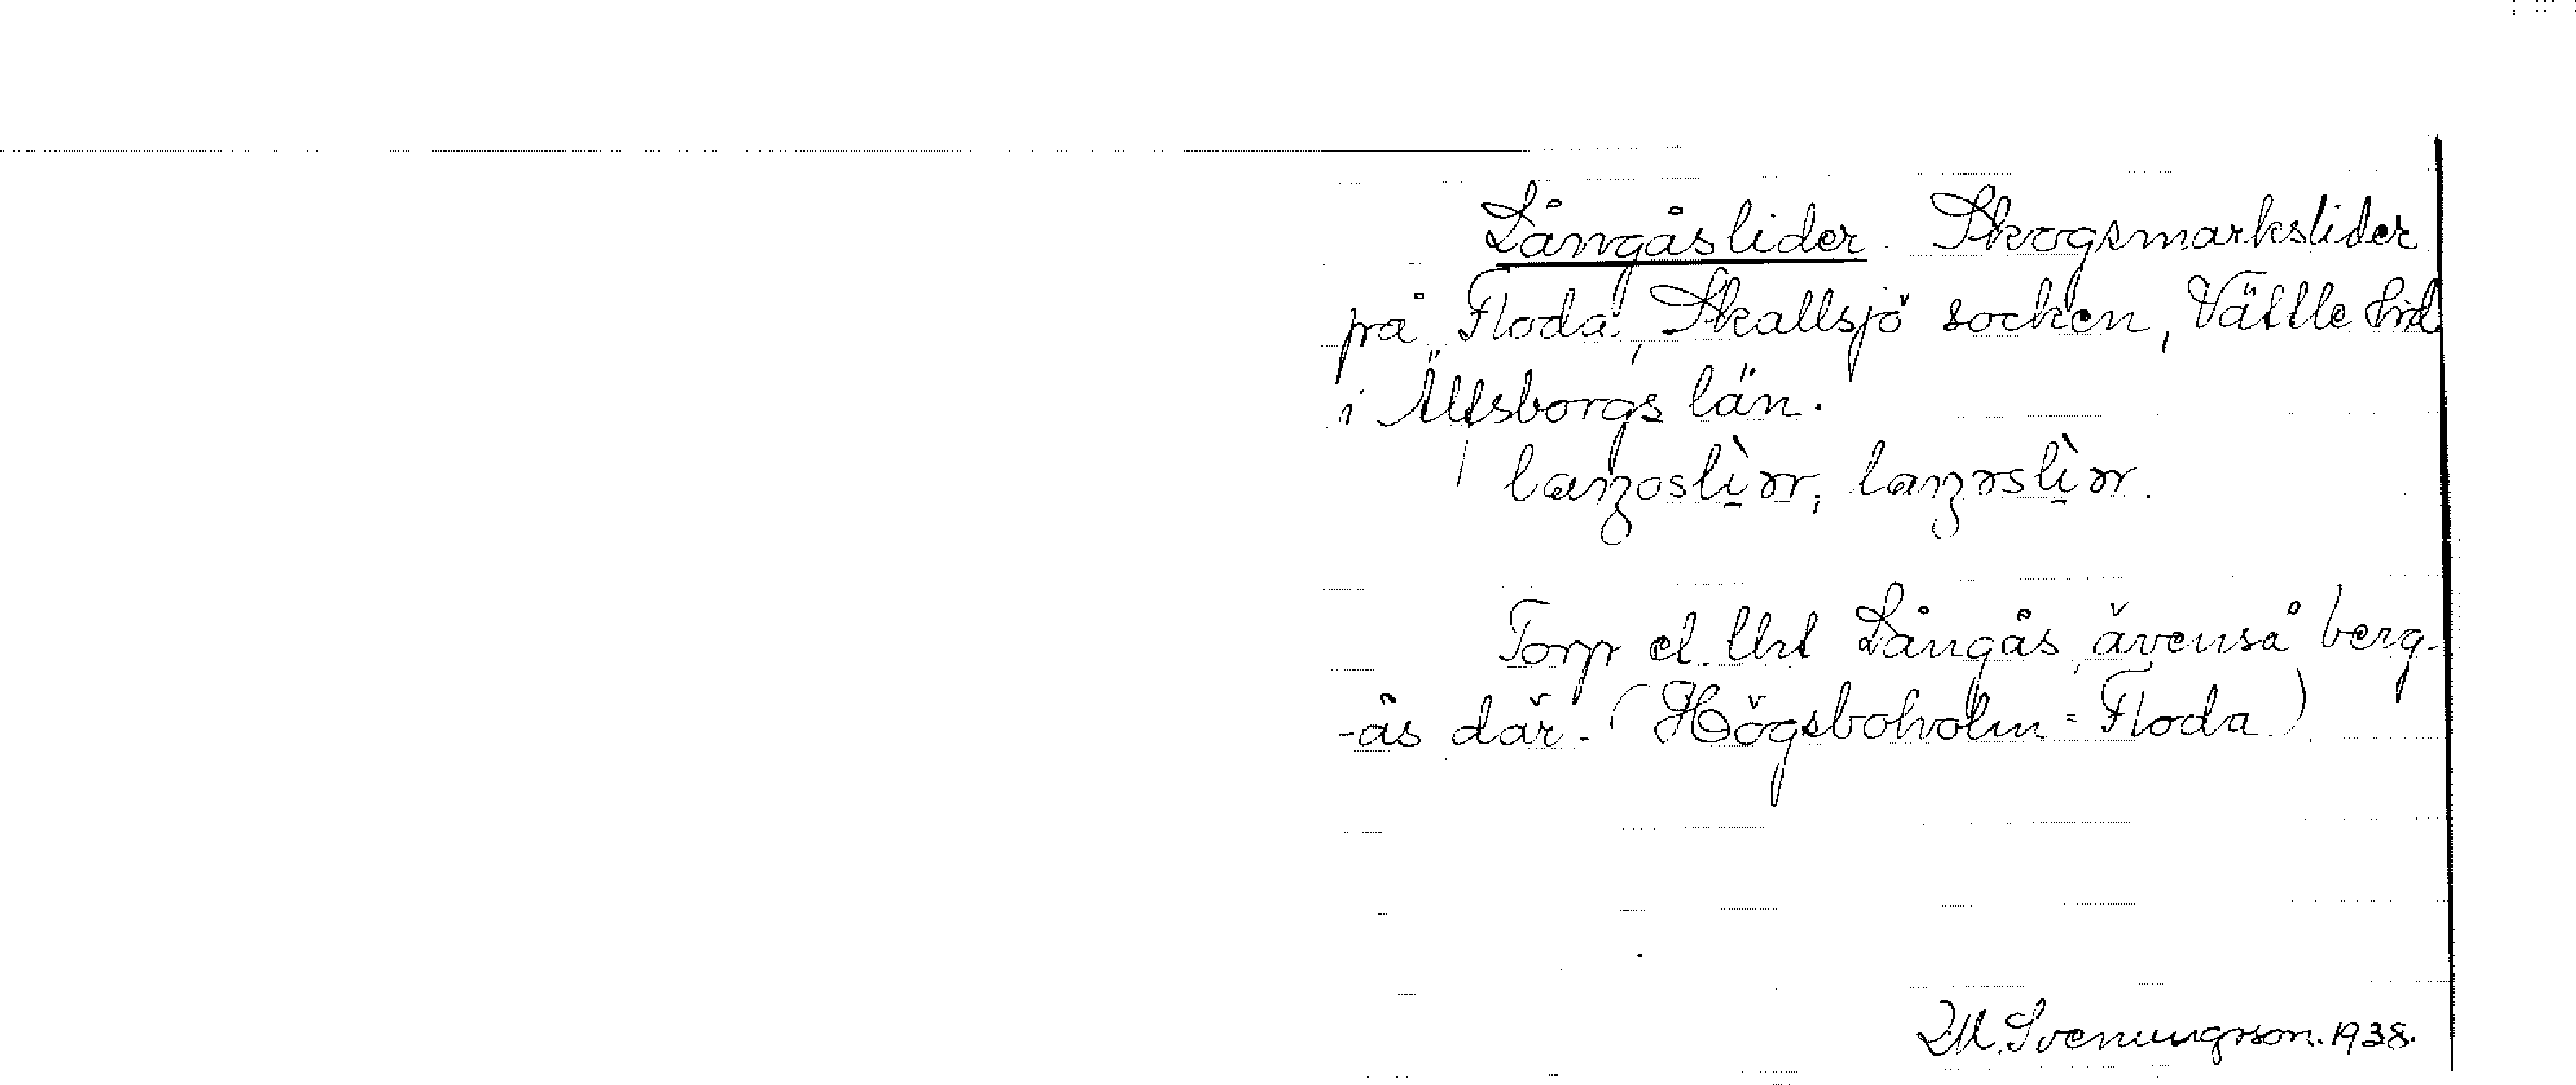 Långåslider. Skogsmarkslider
på Floda, Skallsjö socken, Vättle hd
i Älfsborgs län.
laŋosl̀i̱ər, laŋəsl̀i̱ər.
Torp el. Uht Långås, ävenså berg-
-ås där. (Högsboholm = Floda)
D.M. Svenungsson. 1938.